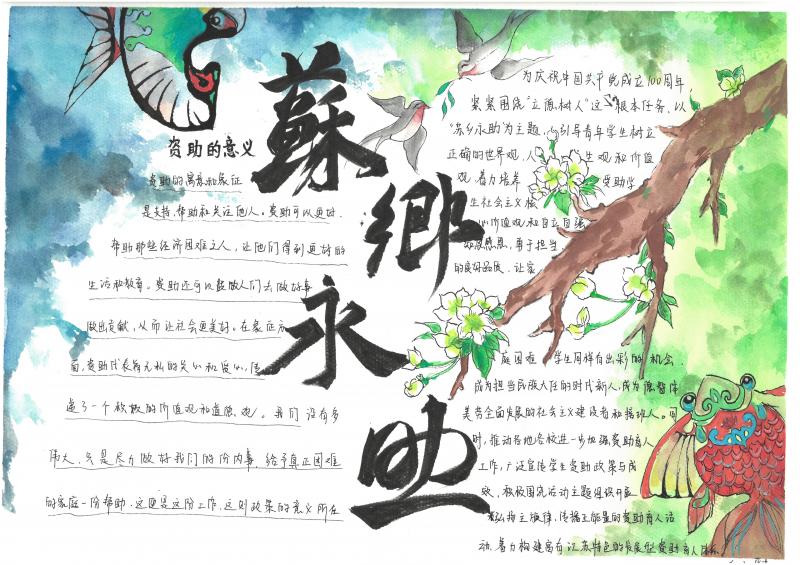 蘇鄉永助
资助的意义
资助的寓意和象征
是支持、帮助和关注他人。资助可以更好
帮助那些经济困难之人，让他们得到更好的
生活和教育。资助还可以鼓励人们去做好事
做出贡献，从而让社会更美好。在象征方
面，资助代表着无私的关心和爱心，传
递了一个积极的价值观和道德观。我们没有多
伟大，只是尽力做好我们的份内事，给予真正困难
的家庭一份帮助，这便是这份工作，这则政策的意义所在
为庆祝中国共产党成立100周年
紧紧围绕"立德树人"这一根本任务，以
"苏乡永助"为主题，引导青年学生树立
正确的世界观，人生观和价值
观，着力培养受助学
生社会主义核
心价值观和自立自强
感恩，勇于担当
的良好品质，让家
庭困难学生同样有出彩的机会
成为担当民族大任的时代新人，成为德智体
美劳全面发展的社会主义建设者和接班人。同
时，推动各地各校进一步加强资助育人
工作，广泛宣传学生资助政策与成
效，积极围绕活动主题组织开展
弘扬主旋律，传播正能量的资助育人活
动，着力构建富有江苏特色的发展型资助育人体系